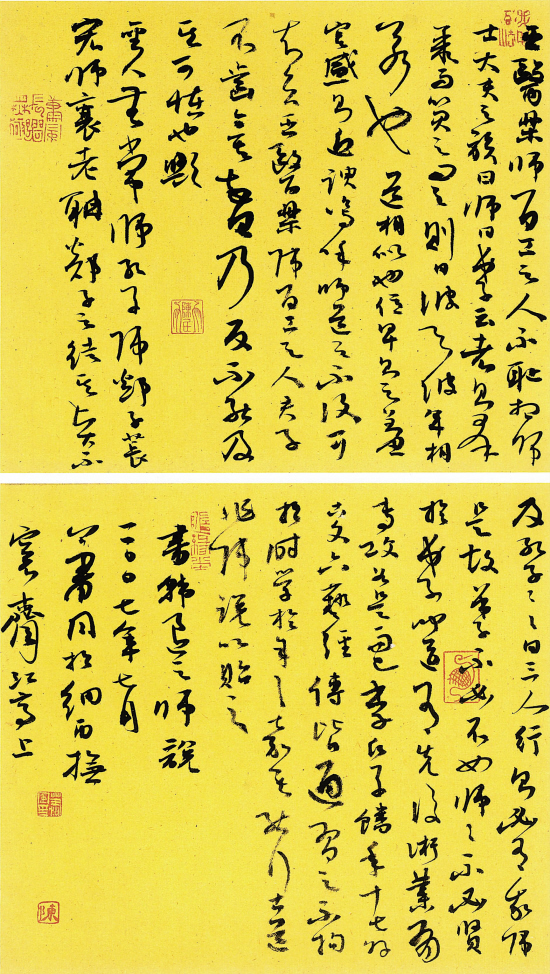 巫醫樂師百工之人不恥相師
士大夫之族曰師曰弟子云者則群
聚而笑之問之則曰彼與彼年相
若也道相似也位卑則足羞
官盛則近諛嗚呼師道之不復可
知矣巫醫樂師百工之人君子
不齒今其智乃反不能及
其可怪也歟
聖人無常師孔子師郯子萇
宏師襄老聃郯子之徒其賢不
及孔子〻〻曰三人行則必有我師
是故弟子不必不如師〻不必賢
於弟子聞道有先後術業有
專攻如是而已李氏子蟠年十七好
古文六藝經傳皆通習之不拘
於時學於余〻嘉其能行古道
作師說以貽之
書韓退之師說
二〇〇七年七月
於細雨撫
齋